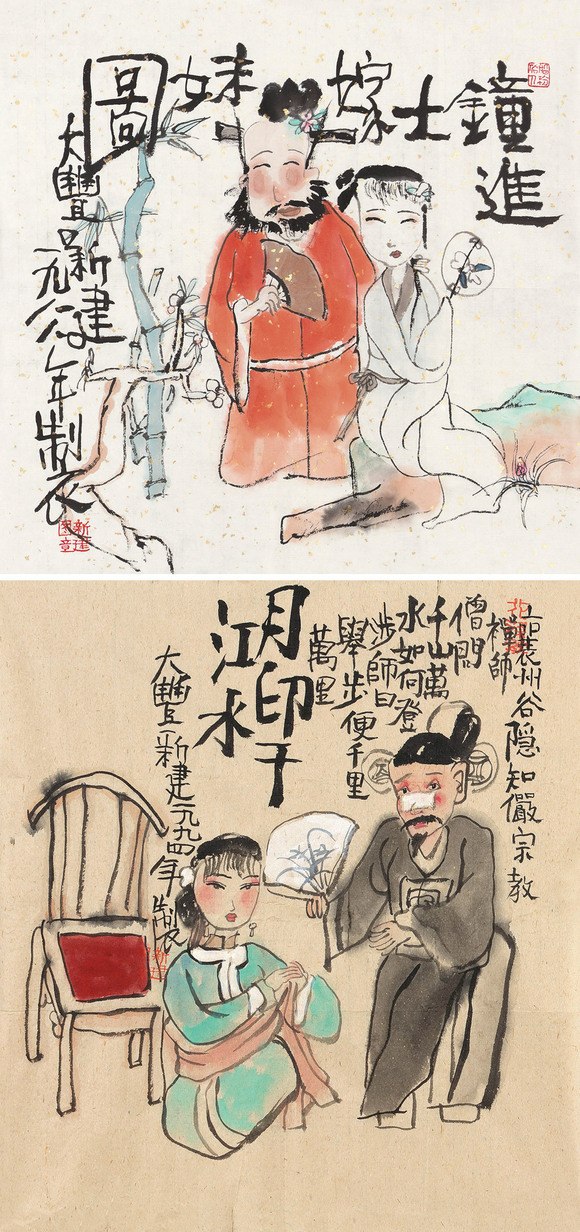 鐘進士嫁妹圖
大豐新建
年製
襄州谷隱知儼宗教
禪師
僧問
千山萬
水如何登
涉師曰
舉步便千里
萬里
月印千
江水
大豐新建一九九四年製